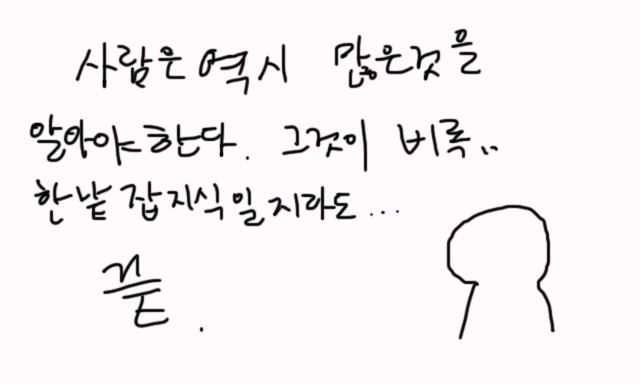 사람은 역시 많은것을
알아야한다. 그것이 비록..
한낱 잡지식일지라도...
끝.